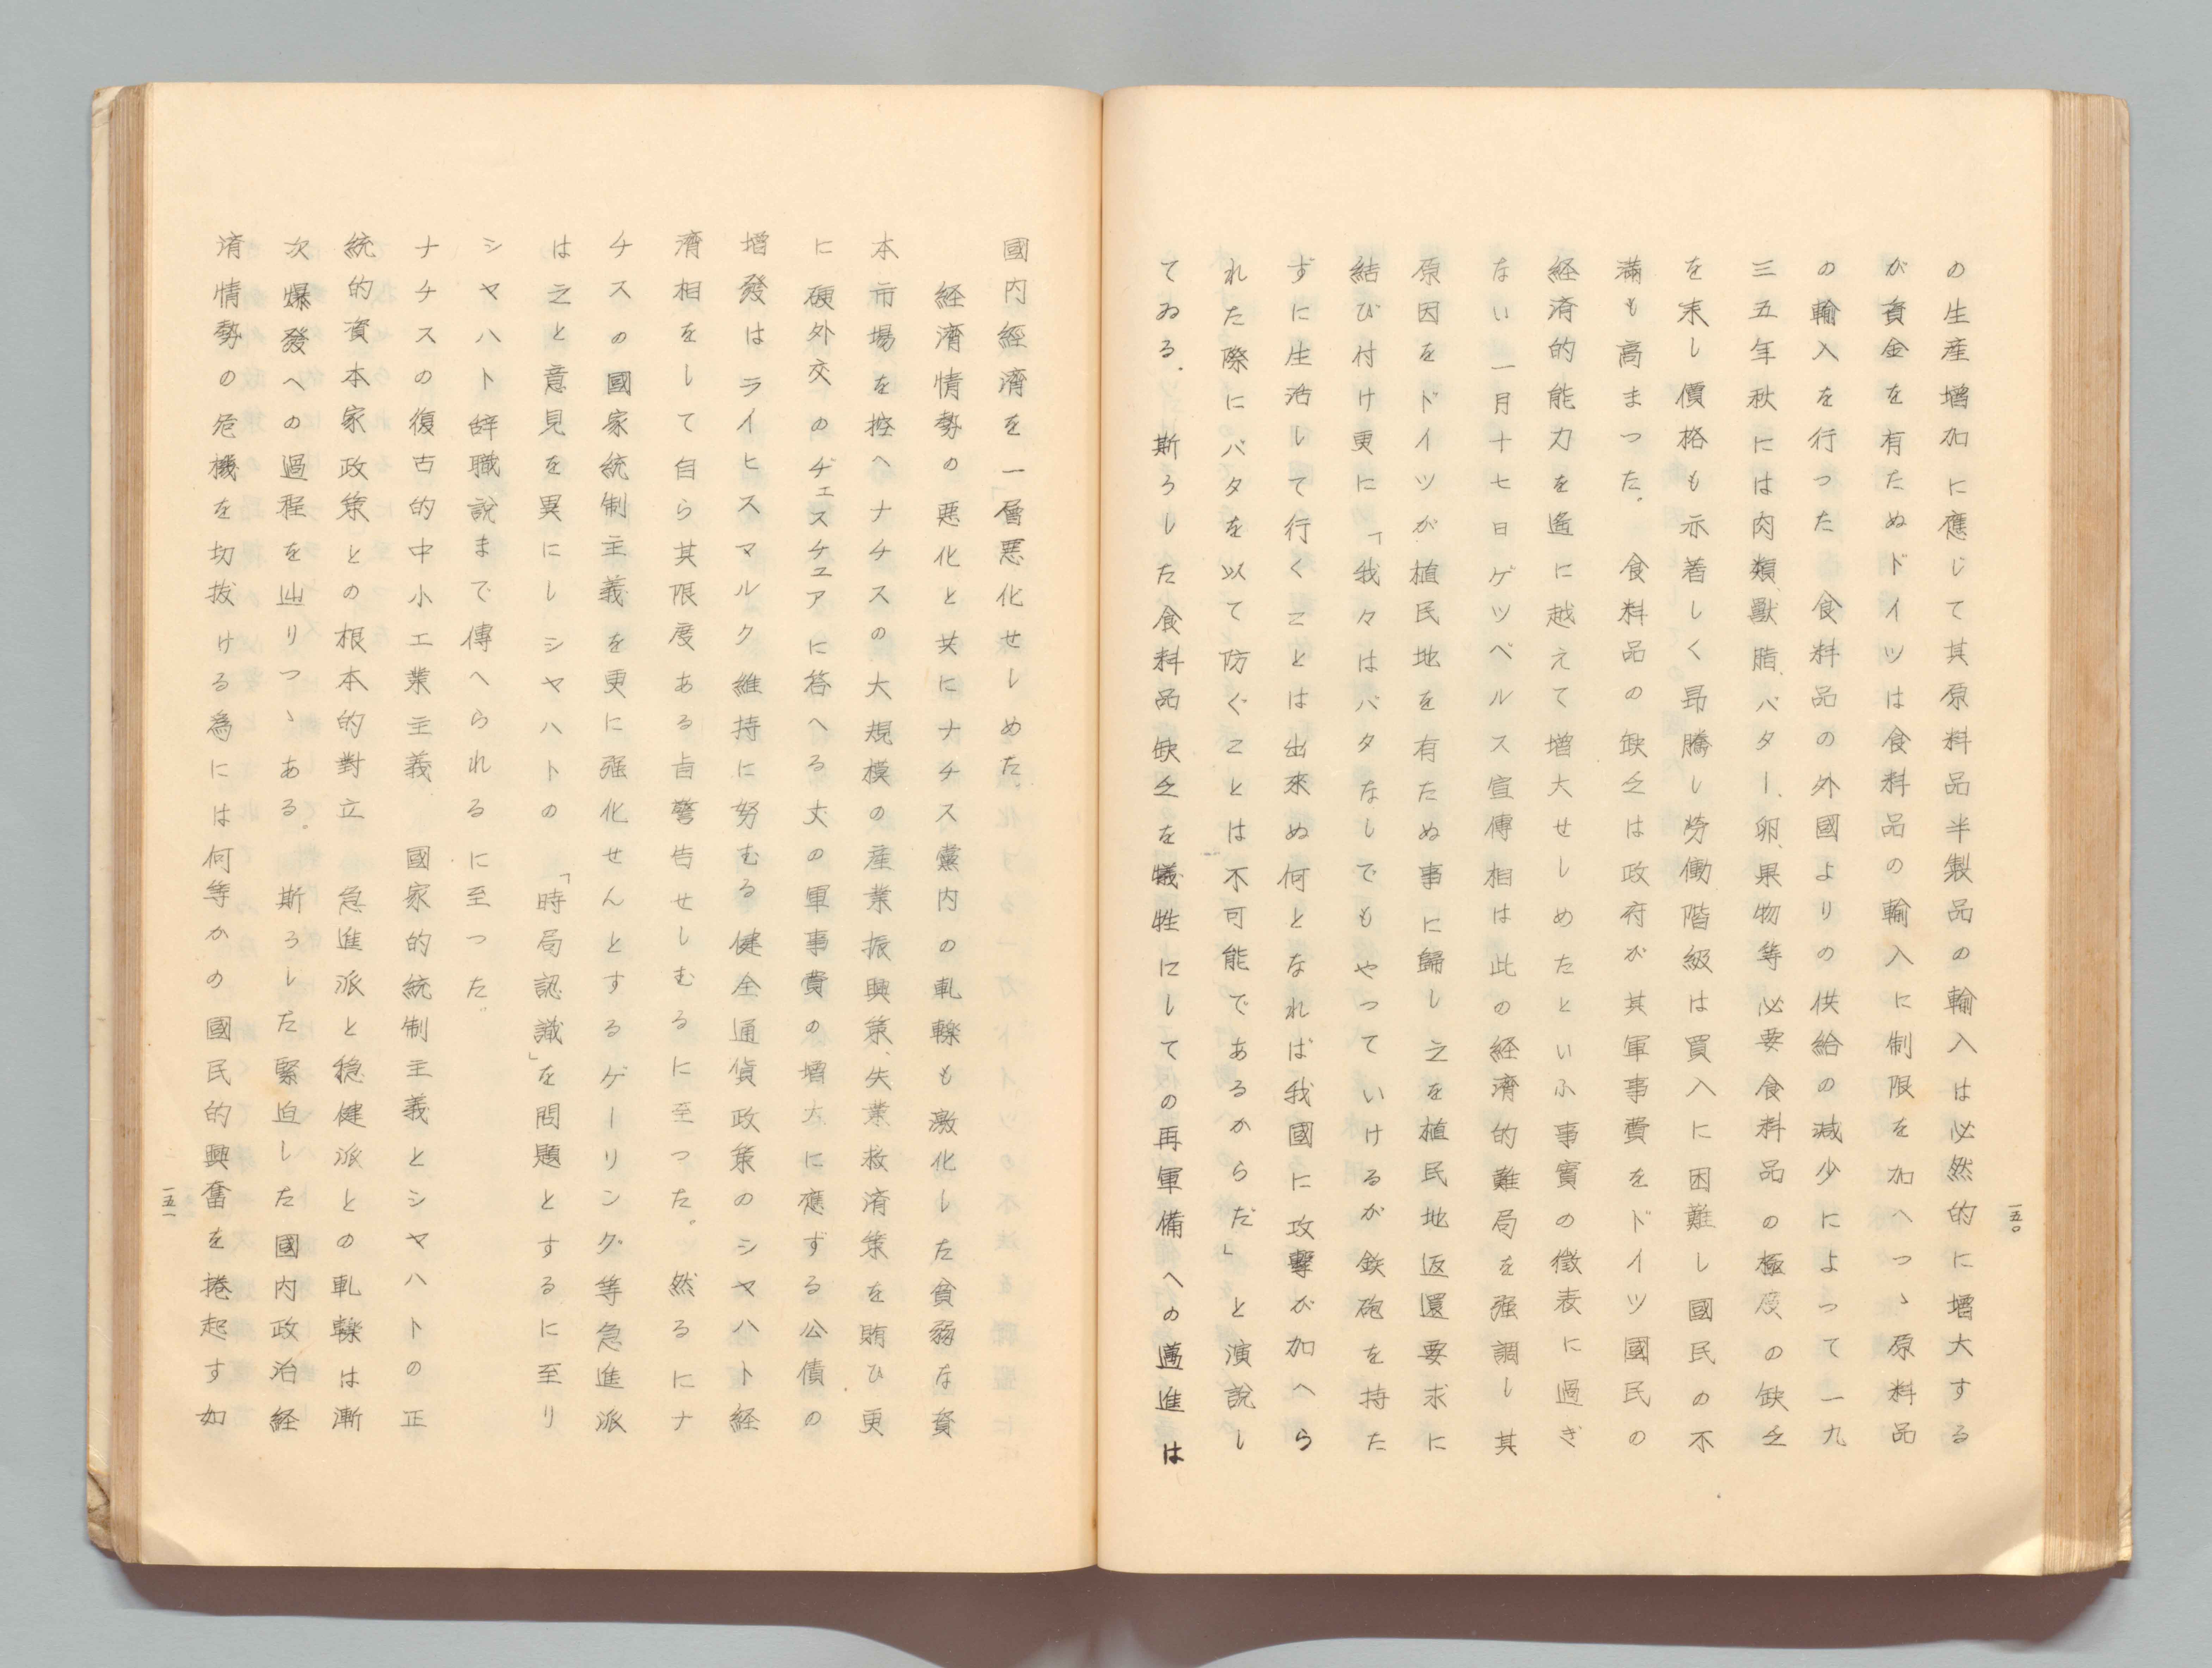 一五〇
の生産増加に應じて其原料品半製品の輸入は必然的に増大する
が資金を有たぬドイツは食料品の輸入に制限を加へつゝ原料品
の輸入を行つた　食料品の外國よりの供給の減少によつて一九
三五年秋には肉類獸脂、バター、卵、果物等必要食料品の極度の缺乏
を来し價格も示著しく昻騰し勞働階級は買入に困難し國民の不
滿も高まつた。食料品の缺乏は政府が其軍事費をドイツ國民の
経済的能力を遙に越えて増大せしめたといふ事實の徵表に過ぎ
ない　一月十七日ゲツペルス宣傳相は此の経濟的難局を强調し其
原因をドイツが植民地を有たぬ事に歸し之を植民地返還要求に
結び付け更に「我々はバタなしでもやつていけるが鉄砲を持た
ずに生活して行くことは出來ぬ何となれば我國に攻擊が加へら
れた際にバタを以て防ぐことは不可能であるからだ」と演說し
てゐる．斯うした食料品缺乏を犠牲にしての再軍備への邁進は
國内經濟を一層悪化せしめた．
経濟情勢の悪化と共にナチス黨内の軋轢も激化した貧弱な資
本市場を控へナチスの大規模の産業振興策、失業救済策を賄ひ更
に硬外交のヂェスチュアに答へる丈の軍事費の増大に應ずる公債の
増發はライヒスマルク維持に努むる健全通貨政策のシヤハト経
濟相をして自ら其限度ある旨警告せしむるに至つた。然るにナ
チスの國家統制主義を更に强化せんとするゲーリング等急進派
は之と意見を異にしシヤハトの「時局認識」を問題とするに至り
シヤハト辞職說まで傳へられるに至つた。
ナチスの復古的中小工業主義　國家的統制主義とシヤハトの正
統的資本家政策との根本的對立　急進派と穏健派との軋轢は漸
次爆發への過程を辿りつゝある。斯うした緊迫した國内政治経
済情勢の危機を切拔ける為には何等かの國民的興奮を捲起す如
一五一